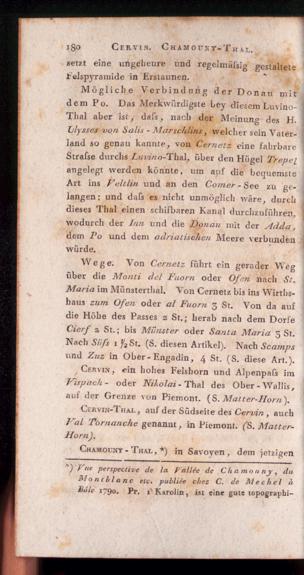 180 CERVIN. CHAMOUNY-THAL.
setzt eine ungeheure und regelmäsig gestaltete
Felspyramide in Erstaunen.
Mögliche Verbindung der Donau mit
dem Po. Das Merkwürdigste bey diesem Luvino-
Thal aber ist, daſs, nach der Meinung des H.
Ulysses von Salis-Marschlins, welcher sein Vater-
land so genau kannte, von Cernetz eine fahrbare
Straſse durchs Luvino-Thal, über den Hügel Trepel
angelegt werden könnte, um auf die bequemste
Art ins Veltlin und an den Comer-See zu ge-
langen; und daſs es nicht unmöglich wäre, durch
dieses Thal einen schifbaren Kanal durchzuführen,
wodurch der Inn und die Donau mit der Adda,
dem Po und dem adriatischen Meere verbunden
würde.
Wege. Von Cernetz führt ein gerader Weg
über die Monti del Fuorn oder Ofen nach St.
Maria im Münsterthal. Von Cernetz bis ins Wirths-
haus zum Ofen oder al Fuorn 3 St. Von da auf
die Höhe des Passes 2 St.; herab nach dem Dorfe
Cierf 2 St.; bis Münster oder Santa Maria 3 St.
Nach Süſs 1 ½ St. (S. diesen Artikel). Nach Scamps
und Zuz in Ober-Engadin, 4 St. (S. diese Art.).
CERVIN, ein hohes Felshorn und Alpenpaſs im
Vispach- oder Nikolai-Thal des Ober-Wallis,
auf der Grenze von Piemont. (S. Matter-Horn).
CERVIN-THAL, auf der Südseite des Cervin, auch
Val Tornanche genannt, in Piemont. (S. Matter-
Horn).
CHAMOUNY-THAL, *) in Savoyen, dem jetzigen
*) Vue perspective de la Vallée de Chamouny, du
Montblanc etc. publiée chez C. de Mechel à
Bâle 1790. Pr. 1 Karolin, ist eine gute topographi-